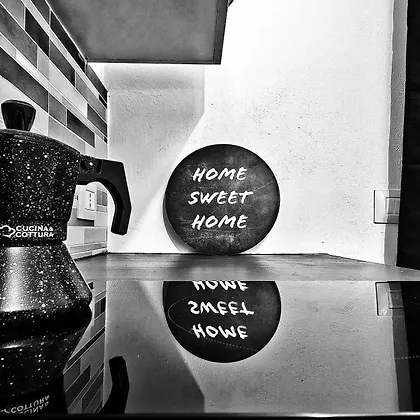 HOME
SWEET
HOME
CUCINA&
COTTURA